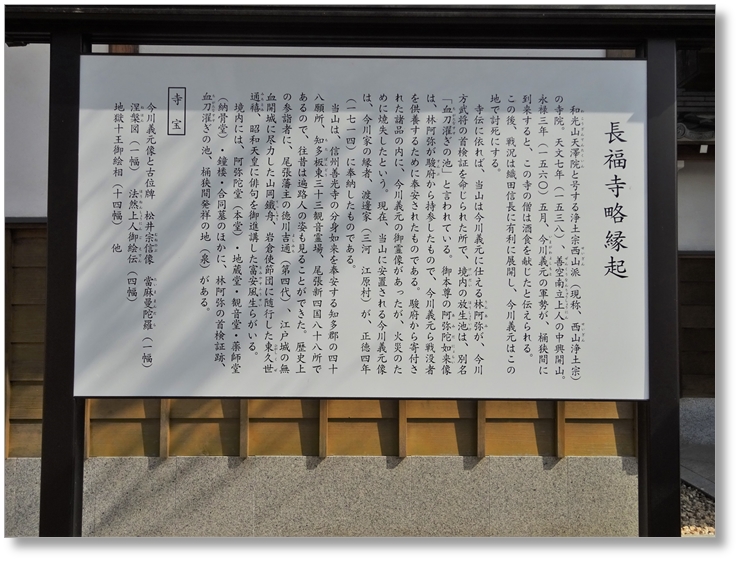 長福寺略縁起
和光山天澤院と号する浄土宗西山派（現称、西山浄土宗）
の寺院。天文七年（一五三八）、善空南立上人の中興開山。
永禄三年（一五六〇）五月、今川義元の軍勢が、桶狭間に
到来すると、この寺の僧は酒食を献じたと伝えられる。
この後、戦況は織田信長に有利に展開し、今川義元はこの
地で討死にする。
寺伝に依れば、当山は今川義元に仕える林阿弥が、今川
方武将の首検証を命じられた所で、境内の放生池は、別名
「血刀濯ぎの池」と言われている。御本尊の阿弥陀如来像
は、林阿弥が駿府から持参したもので、今川義元ら戦没者
を供養するために奉安されたものである。駿府から寄付さ
れた諸品の内に、今川義元の御霊像があったが、火災のた
めに焼失したという。現在、当山に安置される今川義元像
は、今川家の縁者、渡邊家（三河 江原村）が、正徳四年
（一七一四）に奉納したものである。
当山は、信州善光寺の分身如来を奉安する知多郡の四十
八願所、知多板東三十三観音霊場、尾張新四国八十八所で
あるので、往昔は遍路人の姿も見ることができた。歴史上
の参詣者に、尾張藩主の徳川吉通（第四代）、江戸城の無
血開城に尽力した山岡鐵舟、岩倉使節団に随行した東久世
通禧、昭和天皇に俳句を御進講した富安風生らがいる。
境内には、阿弥陀堂（本堂）・地蔵堂・観音堂・薬師堂
（納骨堂）・鐘楼・合同墓のほかに、林阿弥の首検証跡、
血刀濯ぎの池、桶狭間発祥の地（泉）がある。
寺宝
今川義元像と古位牌 松井宗信像 當麻曼陀羅（一幅）
涅槃図（一幅） 法然上人御絵伝（四幅）
地獄十王御絵相（十四幅） 他